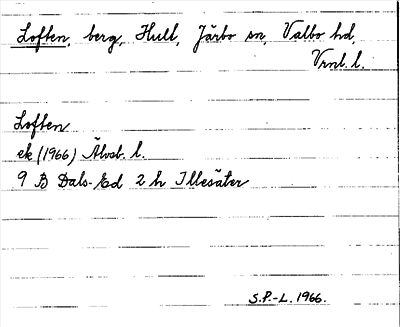 Loften, berg, Hult, Järbo sn, Valbo hd,
Vrml. l.
Loften
ek (1966) Älvsb. l.
9 B Dals-Ed 2 h Illesäter
S.P.-L. 1966.